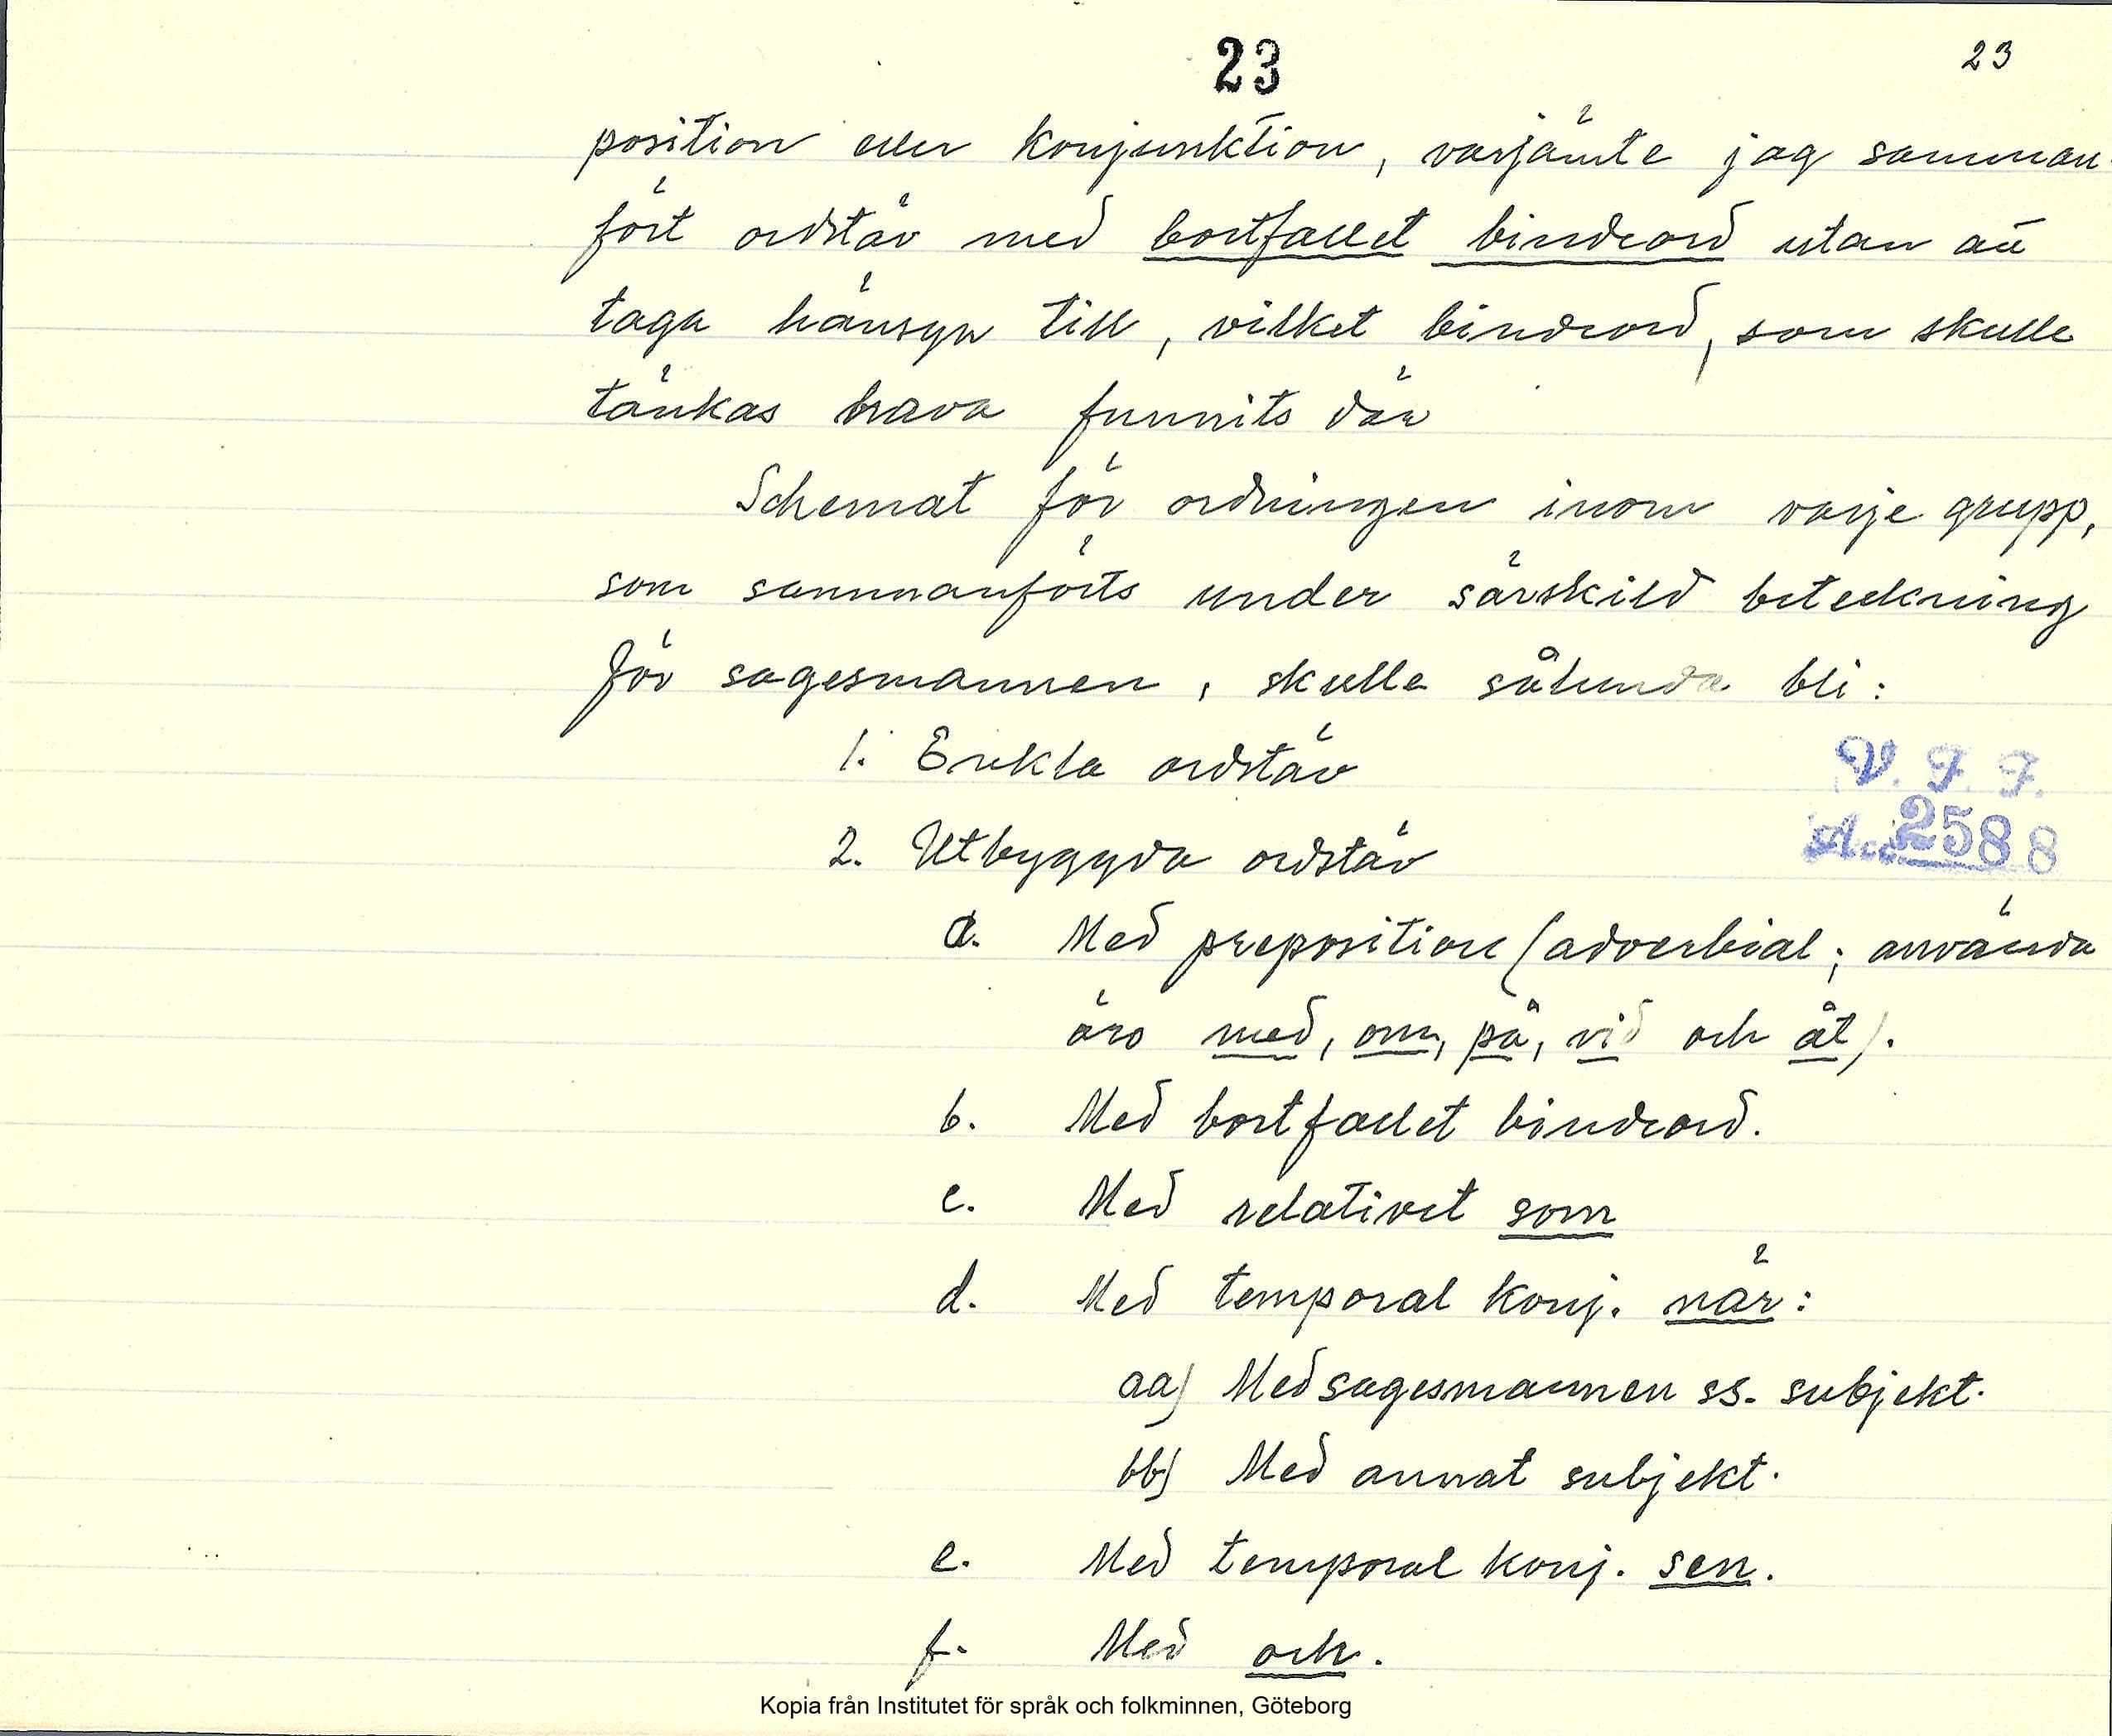 23
23
position eller konjunktion, varjämte jag samman-
fört ordstäv med bortfallet bindeord utan att
taga hänsyn till, vilket bindeord, som skulle
tänkas hava funnits där
Schemat för ordningen inom varje grupp,
som sammanförts under särskild beteckning
för sagesmannen, skulle sålunda bli:
1. Enkla ordstäv
V. F. F.
2. Utbyggda ordstäv
Acc. 2588
a. Med preposition (adverbial; använda
äro med, om, på, vid och åt).
b. Med bortfallet bindeord.
c. Med relativet som
d. Med temporal konj. när:
aa) Med sagesmannen ss. subjekt.
bb) Med annat subjekt.
e. Med temporal konj. sen.
f. Med och.
Kopia från Institutet för språk och folkminnen, Göteborg